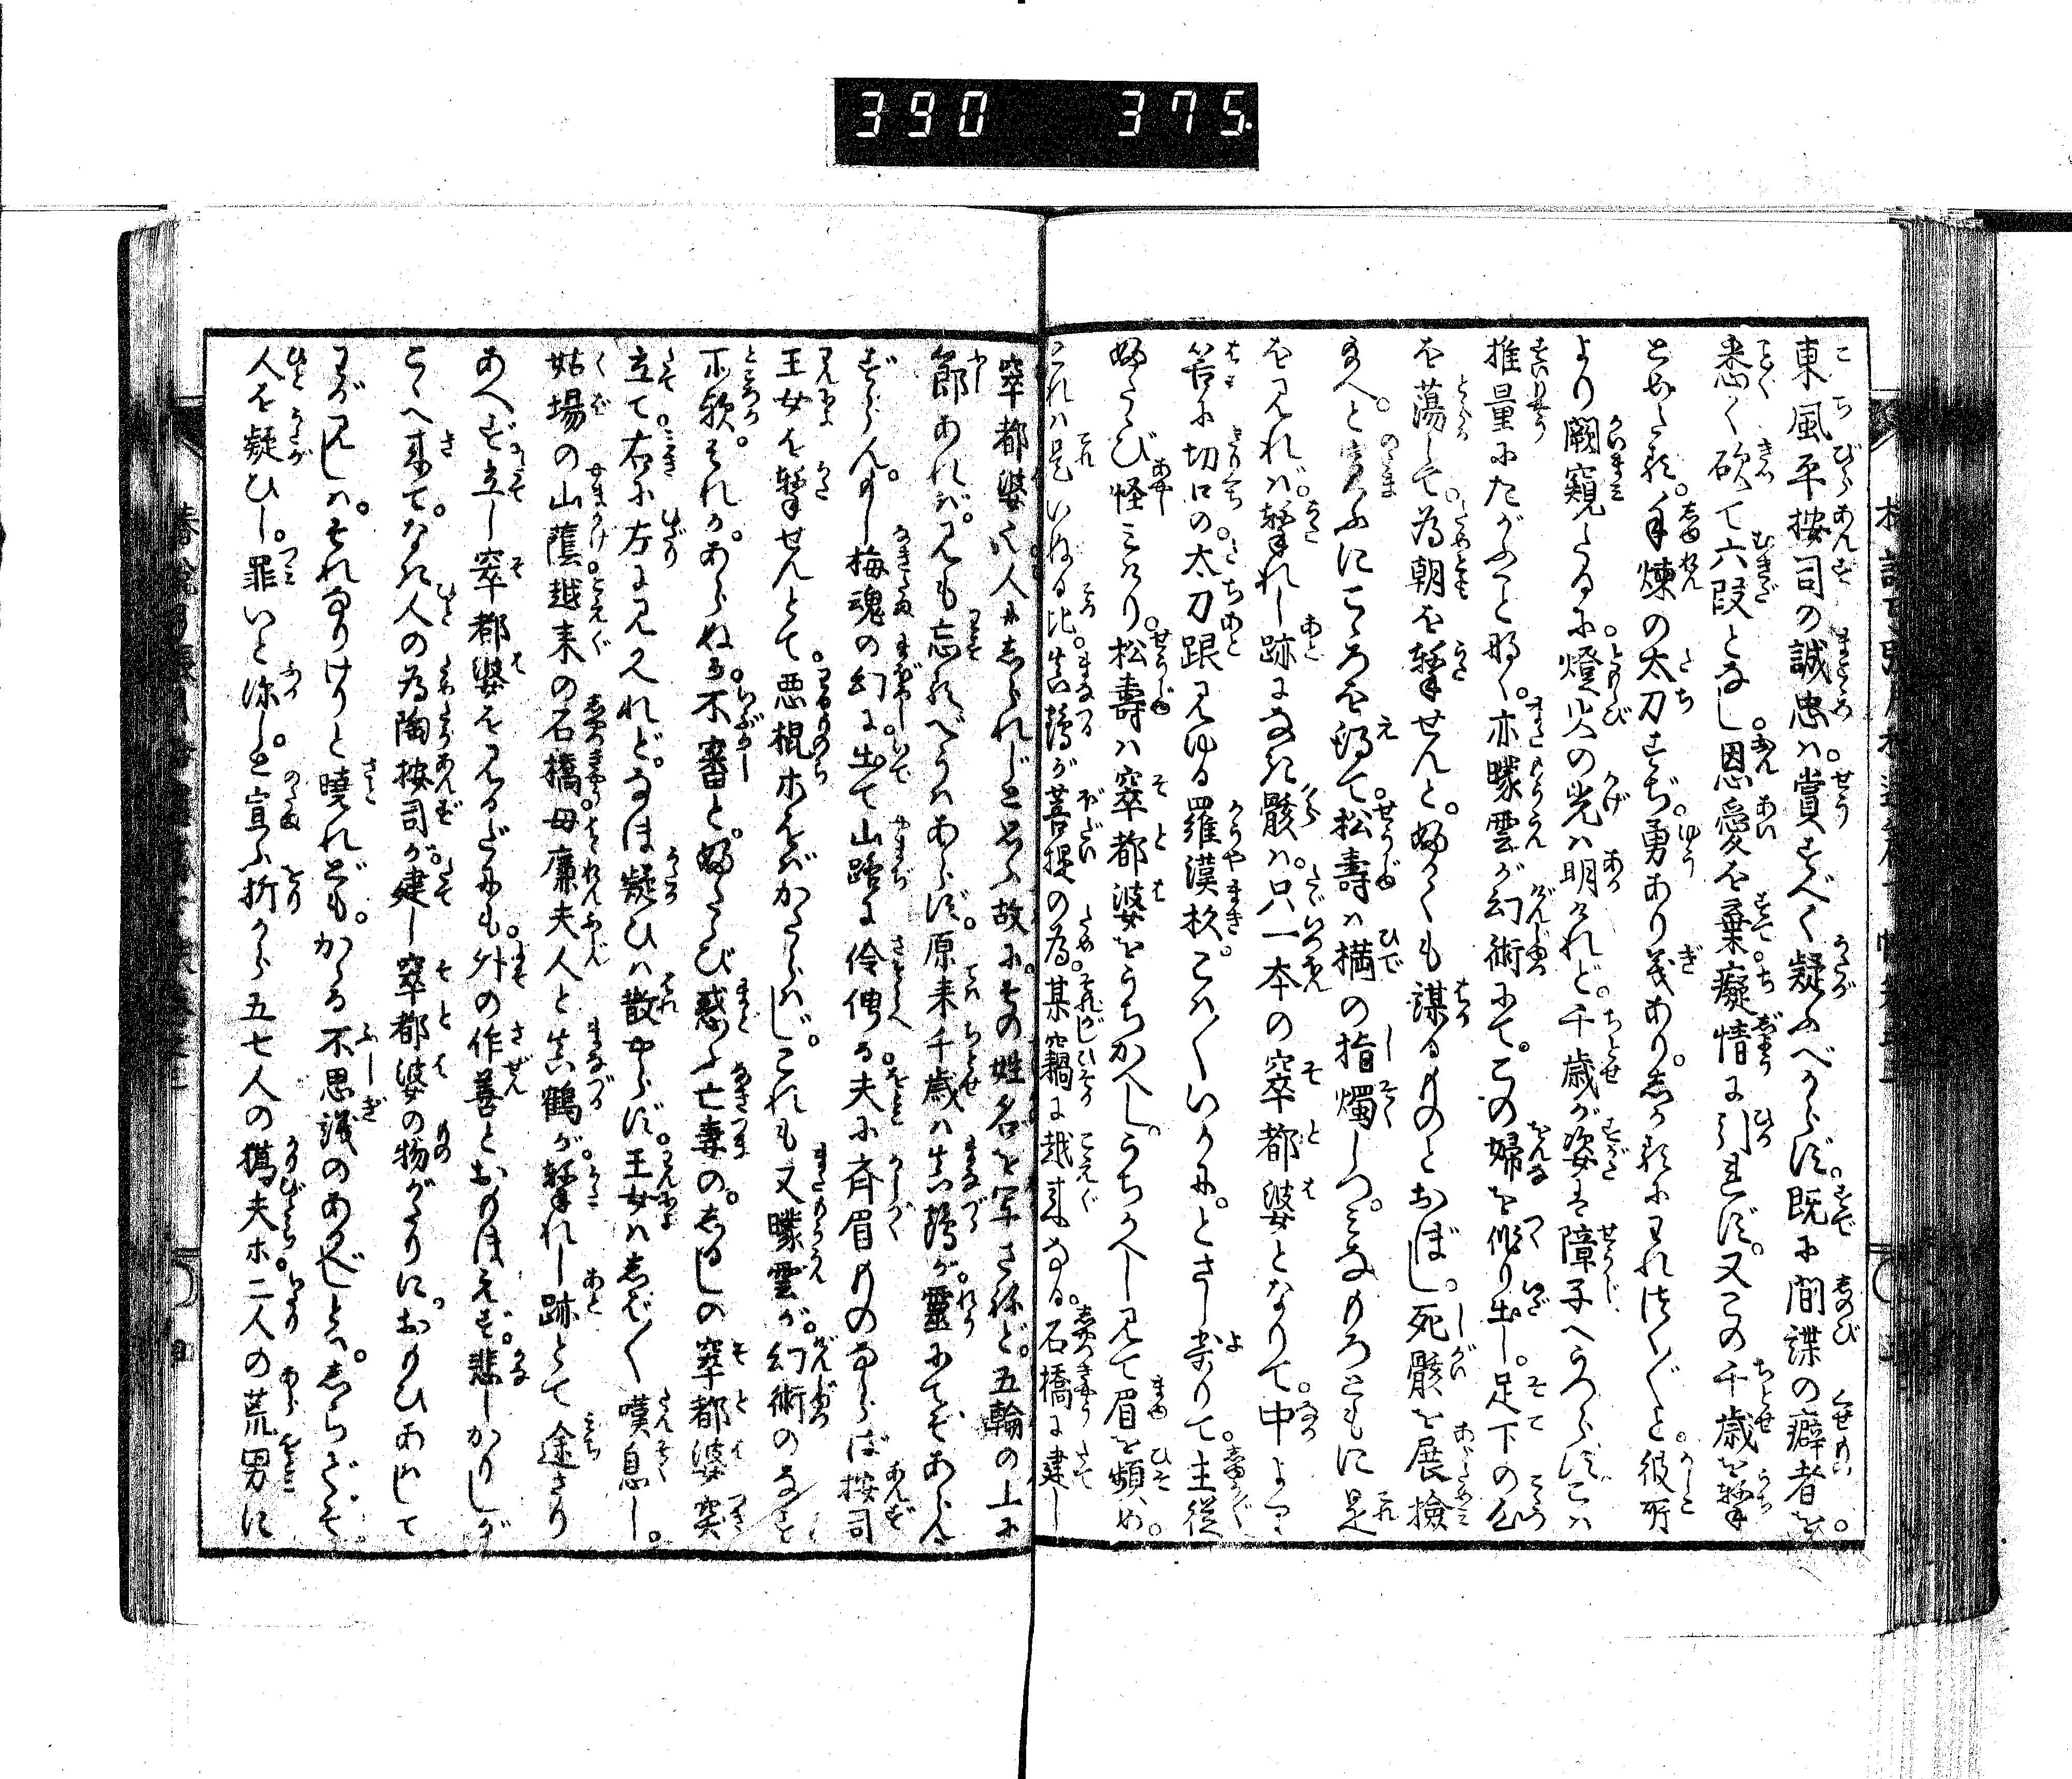 390 375
東風平按司の誠忠は。賞すべく疑ふべからず。既に間諜の癖者を。
悉く砍て六段となし。恩愛を棄。癡情に引れず。又この千歳を撃
とめたる。手煉の太刀すぢ。勇あり義あり。しかるにわれつく〴〵と。彼所
より闚窺たるに。燈火の光は明けれど。千歳が姿は障子へうつらず。こは
推量にたがふことなく。亦曚雲が幻術にて。この婦を作り出し。足下の心
を蕩して。為朝を撃せんと。ふかくも謀るものとおぼし。死骸を展撿
給へと宣ふにこゝろを得て。松壽は構の指燭しつ。みなもろともに是
を見れば。撃れし跡になき骸は。只一本の窣都婆となりて。中より
筈に切口の。太刀跟見ゆる羅漢杉。こは〳〵いかに。とさし寄りて。主従
ふたゝび怪みけり。松壽は窣都婆をうちかへし。うちかへし見て眉を顰め。
これは是いぬる比。真鶴が菩提の為。某竊に越来なる。石橋に建し
窣都婆也。人にしられじと思ふ故に。その姓名を写さねど。五輪の上に
節あれば。見も忘るべうはあらず。原来千歳は真鶴が。霊にてぞあらん
ずらん。なし梅魂の幻に。出て山路に伶俜る夫に斉眉ものならば按司
王女を撃せんとて。悪棍ホをばかたらはじ。これも又曚雲が。幻術のなす
所歟。それか。あらぬか。不審と。ふたゝび惑ふ亡妻の。しるしの窣都婆突
立て。右に左に見かへれど。なほ疑ひは散やらず。王女はしば〳〵嘆息し。
姑場の山蔭越来の石橋。母廉夫人と真鶴が。撃れし跡とて途さり
あへず立し窣都婆を見るだにも。外の作善とおもほえず。悲しかりしが
こゝへ来て。なき人の為陶按司が。建し窣都婆の物がたりに。おもひあはして
わが見しは。それなりけりと暁れども。かゝる不思議のあるべしとは。しらざればこそ
人を疑ひし。罪いと深しと宣ふ折から五七人の獦夫ホ。二人の荒男に